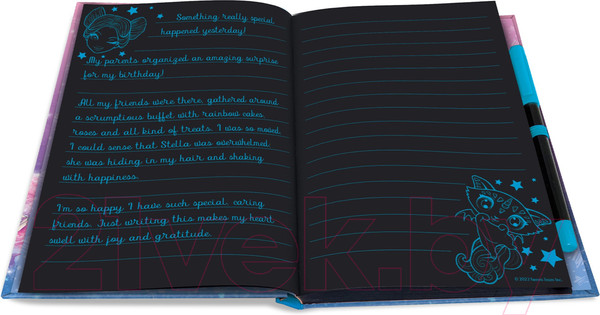 Something really special
happened yesterday!
My parents organized an amazing surprise
for my birthday!
All my friends were there, gathered around
a scrumptious buffet with rainbow cakes
roses and all kind of treats. I was so moved.
I could sense that Stella was overwhelmed,
she was hiding in my hair and shaking
with happiness.
I'm so happy I have such special, caring
friends. Just writing this makes my heart
swell with joy and gratitude.
21vek.by